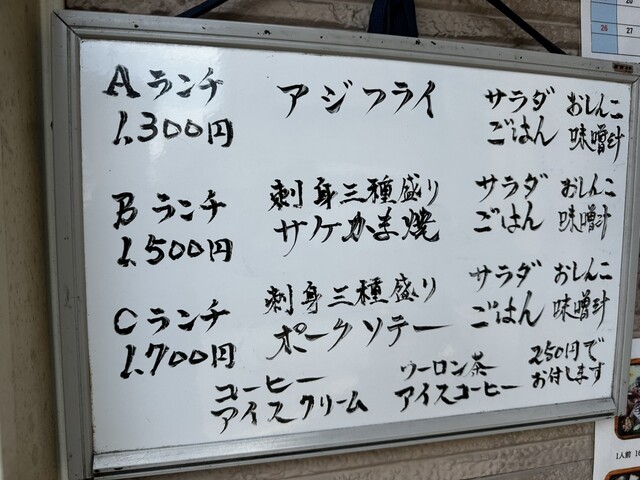 Aランチ アジフライ サラダ おしんこ
1,300円 ごはん 味噌汁
Bランチ 刺身三種盛り サラダ おしんこ
1,500円 サケかま焼 ごはん 味噌汁
Cランチ 刺身三種盛り サラダ おしんこ
1,700円 ポークソテー ごはん 味噌汁
コーヒー ウーロン茶 250円で
アイスクリーム アイスコーヒー お付します
26 27
1人前